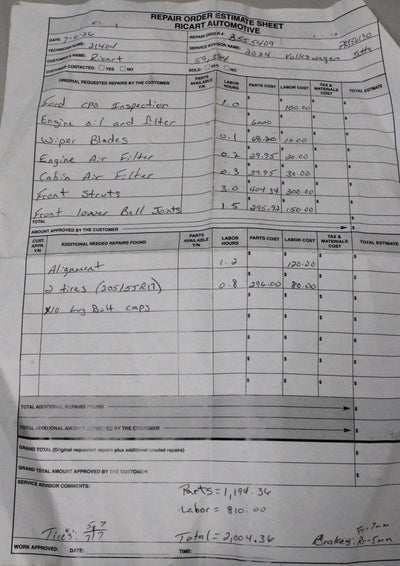 REPAIR ORDER ESTIMATE SHEET
RICART AUTOMOTIVE
DATE: 2-6-26 REPAIR ORDER #: 8555409
TECHNICIAN NAME: 21404 SERVICE ADVISOR NAME: 2024 Volkswagen Jetta
CUSTOMER NAME: Ricart
CUSTOMER CONTACTED: YES NO SOLD: YES NO
ORIGINAL REQUESTED REPAIRS BY THE CUSTOMER PARTS AVAILABLE Y/N LABOR HOURS PARTS COST LABOR COST TAX & MATERIALS COST TOTAL ESTIMATE
Ford CPO Inspection 1.0 $ $ 100.00 $ $
Engine oil and filter $ 60.00 $ $ $
Wiper Blades 0.1 $ 68.20 $ 10.00 $ $
Engine Air Filter 0.2 $ 29.95 $ 20.00 $ $
Cabin Air Filter 0.3 $ 39.95 $ 30.00 $ $
Front Struts 3.0 $ 404.34 $ 300.00 $ $
Front lower Ball Joints 1.5 $ 295.92 $ 150.00 $ $
TOTAL
AMOUNT APPROVED BY THE CUSTOMER $
CUST. APPR. Y/N ADDITIONAL NEEDED REPAIRS FOUND PARTS AVAILABLE Y/N LABOR HOURS PARTS COST LABOR COST TAX & MATERIALS COST TOTAL ESTIMATE
Alignment 1.2 $ $ 120.00 $ $
2 tires (205/55R17) 0.8 $ 296.00 $ 80.00 $ $
x10 Lug Bolt caps $ $ $ $
TOTAL ADDITIONAL REPAIRS FOUND $
TOTAL ADDITIONAL AMOUNT APPROVED BY THE CUSTOMER $
GRAND TOTAL (Original requested repairs plus additional needed repairs) $
GRAND TOTAL AMOUNT APPROVED BY THE CUSTOMER $
SERVICE ADVISOR COMMENTS:
Parts = 1,194.36
Labor = 810.00
Tires: 7 7 Total = 2,004.36 Brakes: Fr-7mm
Rr-5mm
WORK APPROVED: DATE: TIME: